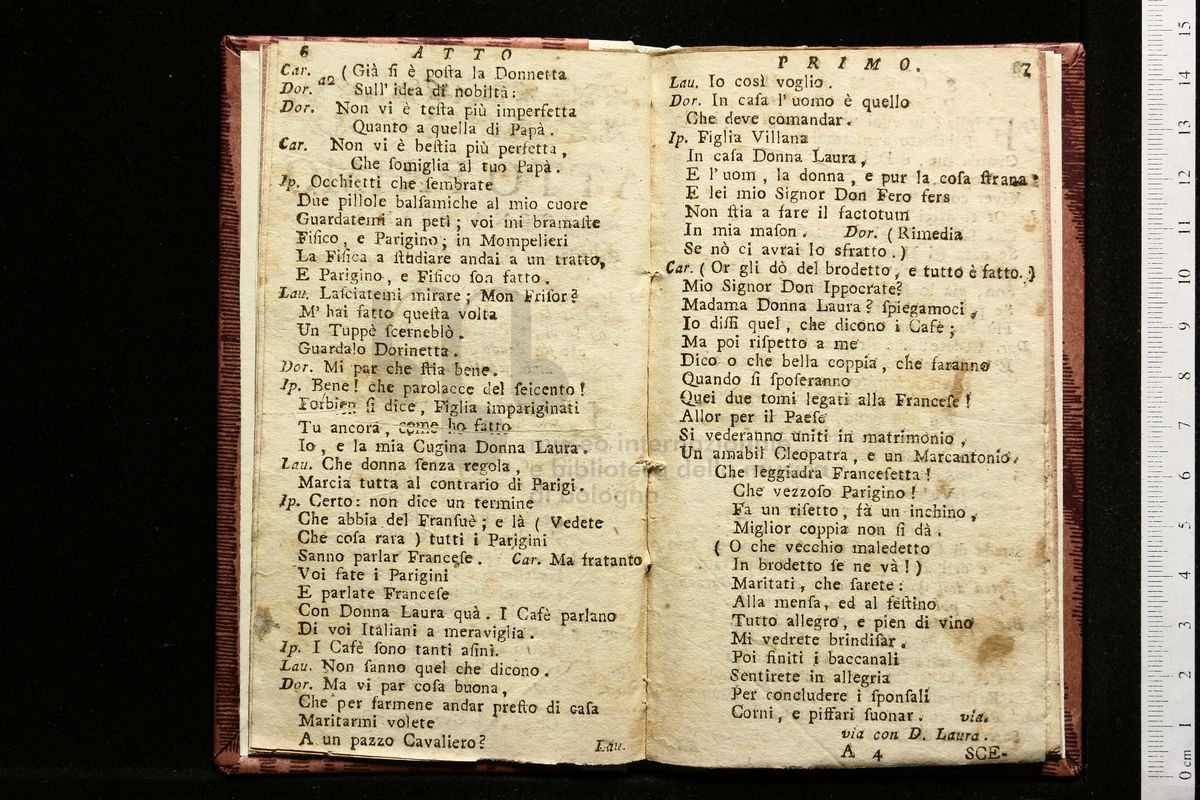 6 ATTO
Car. a2 (Già ſi è poſta la Donnetta
Dor. Sull' idea di nobiltà:
Dor. Non vi è teſta più imperfetta
Quanto a quella di Papà.
Car. Non vi è beſtia più perfetta,
Che ſomiglia al tuo Papà.
Ip. Occhietti che ſembrate
Due pillole balſamiche al mio cuore
Guardatemi an peti; voi mi bramaſte
Fiſico, e Parigino; in Mompelieri
La Fiſica a ſtudiare andai a un tratto,
E Parigino, e Fiſico ſon fatto.
Lau. Laſciatemi mirare; Mon Friſor?
M' hai fatto queſta volta
Un Tuppè ſcerneblò.
Guardalo Dorinetta.
Dor. Mi par che ſtia bene.
Ip. Bene! che parolacce del ſeicento!
Forbien ſi dice, Figlia impariginati
Tu ancora, come ho fatto
Io, e la mia Cugina Donna Laura.
Lau. Che donna ſenza regola,
Marcia tutta al contrario di Parigi.
Ip. Certo: non dice un termine
Che abbia del Franſuè; e là (Vedete
Che coſa rara) tutti i Parigini
Sanno parlar Franceſe. Car. Ma fratanto,
Voi fate i Parigini
E parlate Franceſe
Con Donna Laura quà. I Cafè parlano
Di voi Italiani a meraviglia.
Ip. I Cafè ſono tanti aſini.
Lau. Non ſanno quel che dicono.
Dor. Ma vi par coſa buona,
Che per farmene andar preſto di caſa
Maritarmi volete
A un pazzo Cavaliero?
Lau.
PRIMO. 7
Lau. Io così voglio.
Dor. In caſa l' uomo è quello
Che deve comandar.
Ip. Figlia Villana
In caſa Donna Laura,
E l' uom, la donna, e pur la coſa ſtrana.
E lei mio Signor Don Fero fers
Non ſtia a fare il factotum
In mia maſon. Dor. (Rimedia
Se nò ci avrai lo sfratto.)
Car. (Or gli dò del brodetto, e tutto è fatto.)
Mio Signor Don Ippocrate?
Madama Donna Laura? ſpiegamoci,
Io diſſi quel, che dicono i Cafè;
Ma poi riſpetto a me
Dico o che bella coppia, che faranno
Quando ſi ſpoſeranno
Quei due tomi legati alla Franceſe!
Allor per il Paeſe
Si vederanno uniti in matrimonio,
Un amabil Cleopatra, e un Marcantonio.
Che leggiadra Franceſetta!
Che vezzoſo Parigino!
Fa un riſetto, fà un inchino,
Miglior coppia non ſi dà.
(O che vecchio maledetto
In brodetto ſe ne và!)
Maritati, che ſarete:
Alla menſa, ed al feſtino
Tutto allegro, e pien di vino
Mi vedrete brindiſar.
Poi finiti i baccanali
Sentirete in allegria
Per concludere i ſponſali
Corni, e piffari ſuonar. via.
via con D. Laura.
A 4 SCE-
museo internazionale
e biblioteca della musica
di bologna
0 cm 1 2 3 4 5 6 7 8 9 10 11 12 13 14 15